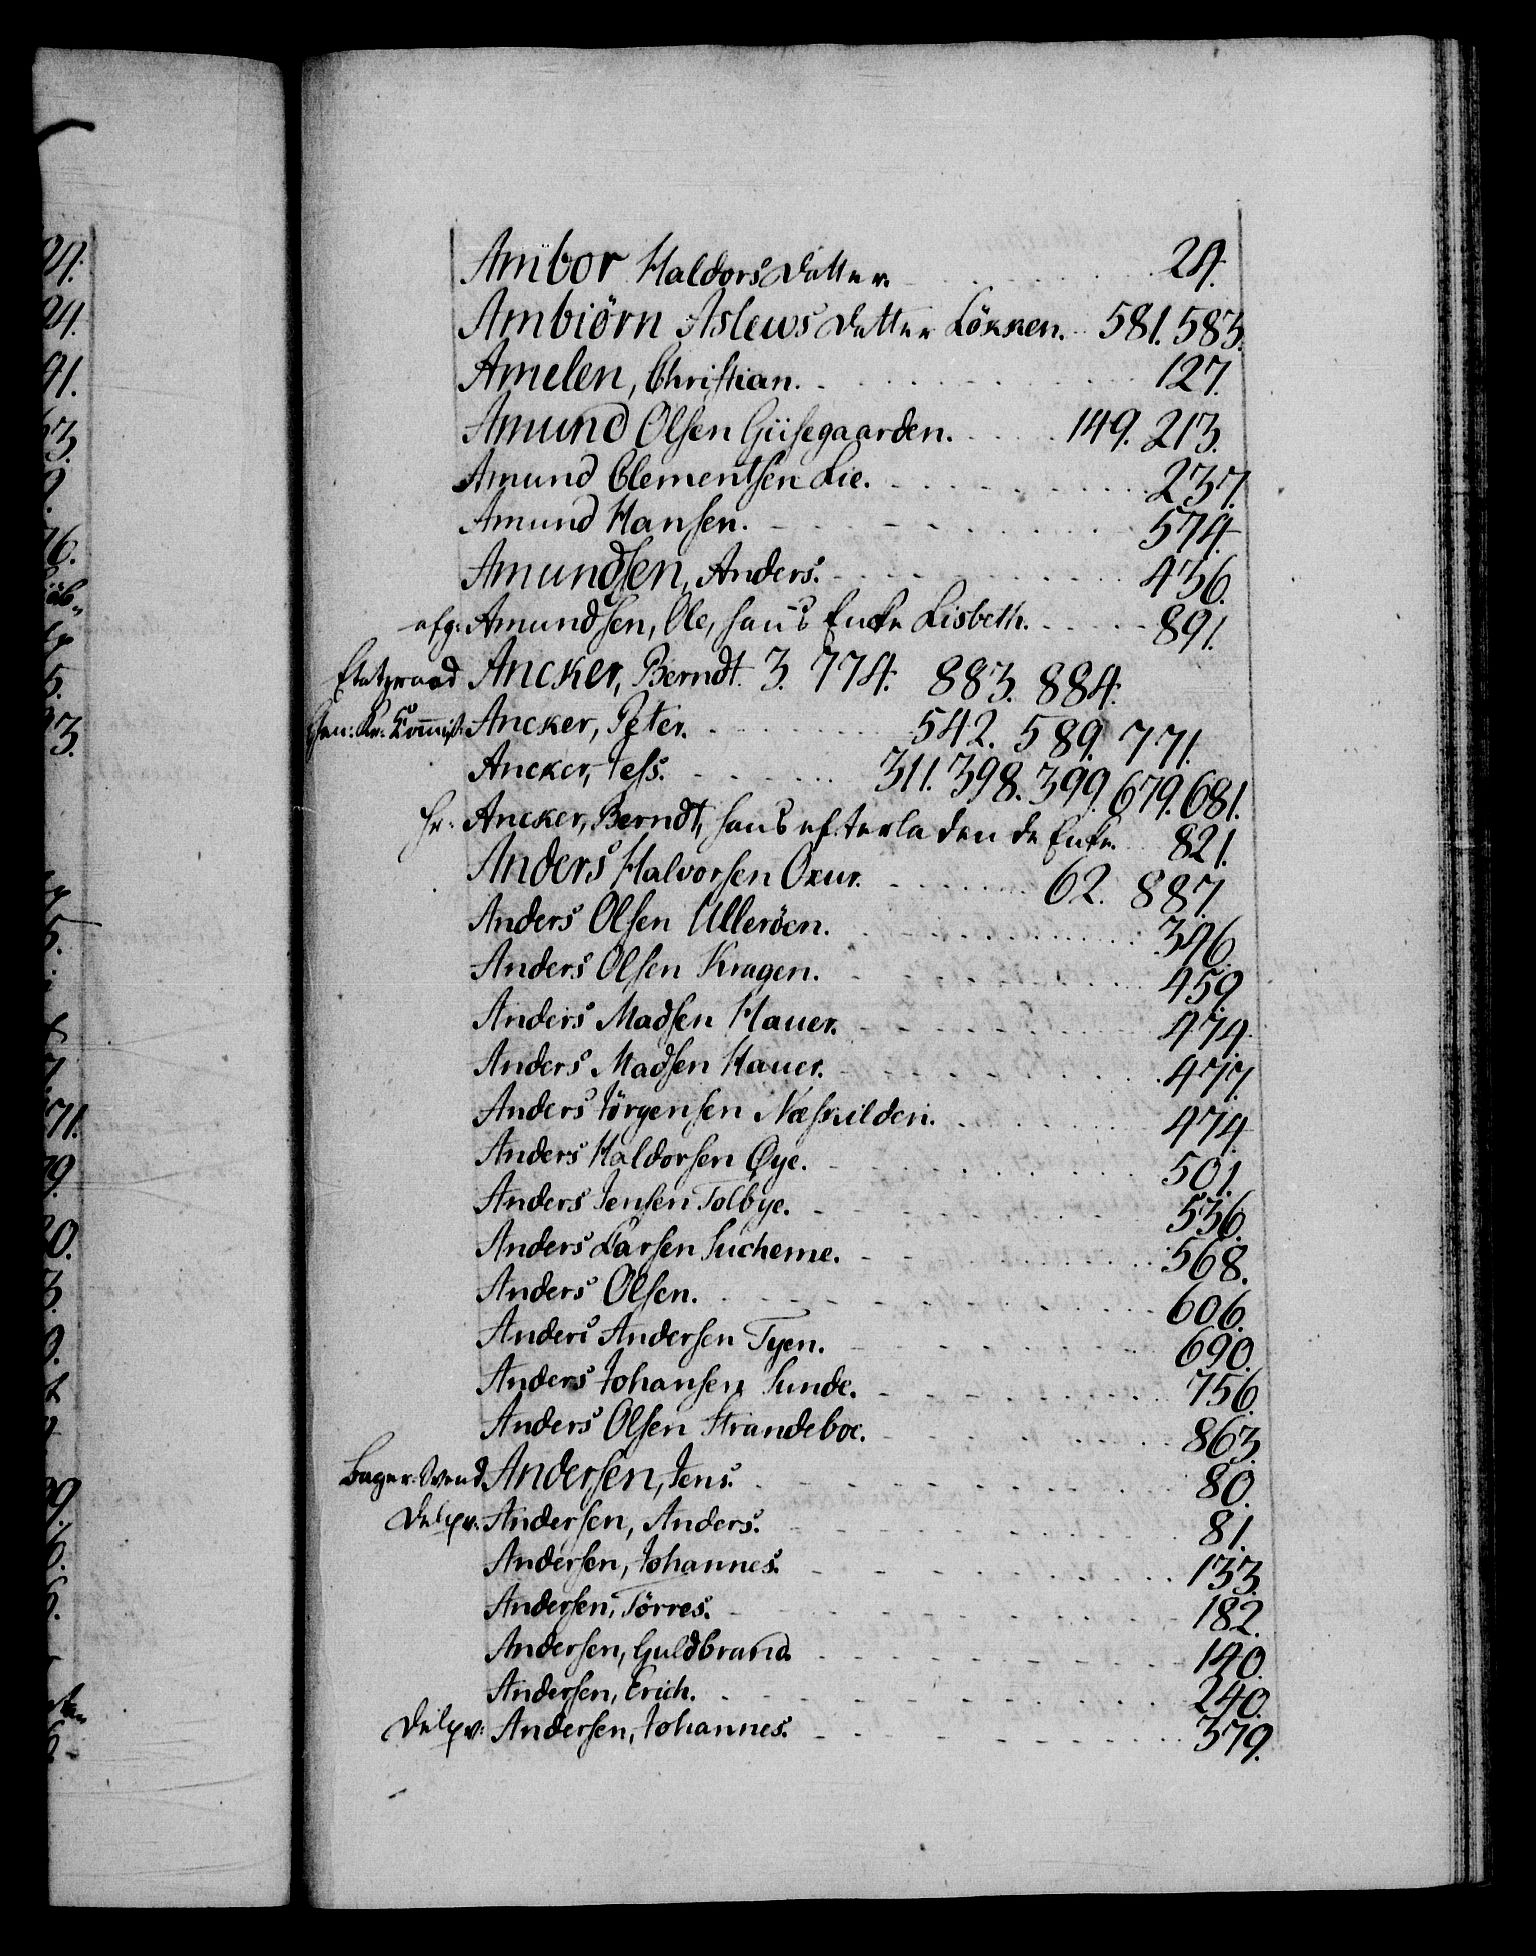 Ambor Haldors datter. 24.
Ambiörn Aslews datter Lökken. 581. 583.
Amelen, Christian. 127.
Amund Olsen Giisegaarden. 149. 213.
Amund Clementsen Lie. 237.
Amund Hansen. 574.
Amundsen, Anders. 436.
afg: Amundsen, Ole, hans Enke Lisbeth. 891.
Etatzraad Ancker, Berndt. 3. 774. 883. 884.
Gen: Kr: Commiss: Ancker, Peter. 542. 589. 771.
Ancker, Jess. 311. 398. 399. 679. 681.
Hr: Ancker, Berndt, hans efterladende Enke. 821.
Anders Halvorsen Oxur. 62. 887.
Anders Olsen Ulleröen. 346.
Anders Olsen Kragen. 459.
Anders Madsen Hauer. 474.
Anders Madsen Hauer. 477.
Anders Jörgensen Næskilden. 474.
Anders Haldorsen Øye. 501.
Anders Jensen Tolbye. 536.
Anders Larsen Sucheme. 568.
Anders Olsen. 606.
Anders Andersen Tyen. 690.
Anders Johansen Sunde. 756.
Anders Olsen Strandeboe. 863.
Bager-Svend Andersen, Jens. 80.
Andersen, Anders. 81.
Andersen, Johannes. 133.
Andersen, Törres. 182.
Andersen, Guldbrand. 140.
Andersen, Erich. 240.
Andersen, Johannes. 379.